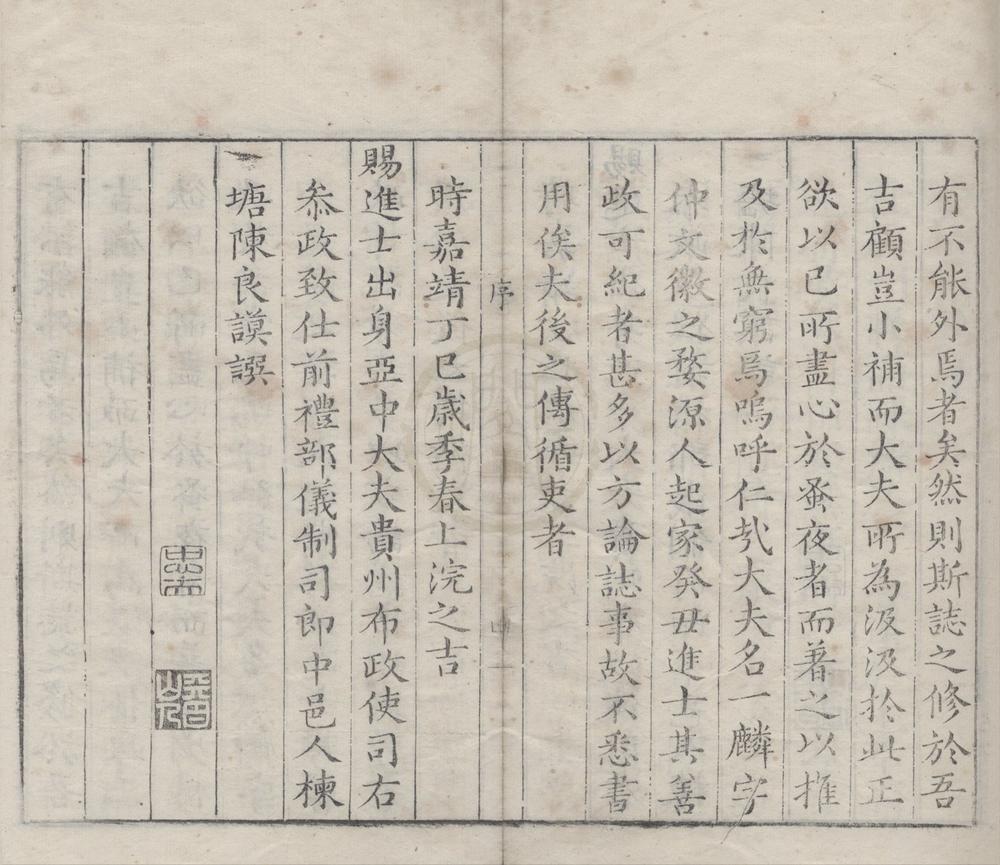 有不能外焉者矣然則斯誌之修於吾
吉顧豈小補而大夫所為汲汲於此正
欲以已所盡心於蚤夜者而著之以推
及於無窮焉嗚呼仁哉大夫名一麟字
仲文徽之婺源人起家癸丑進士其善
政可紀者甚多以方論誌事故不悉書
用俟夫後之傳循吏者
序
四
時嘉靖丁巳歲季春上浣之吉
賜進士出身亞中大夫貴州布政使司右
叅政致仕前禮部儀制司郎中邑人棟
塘陳良謨譔